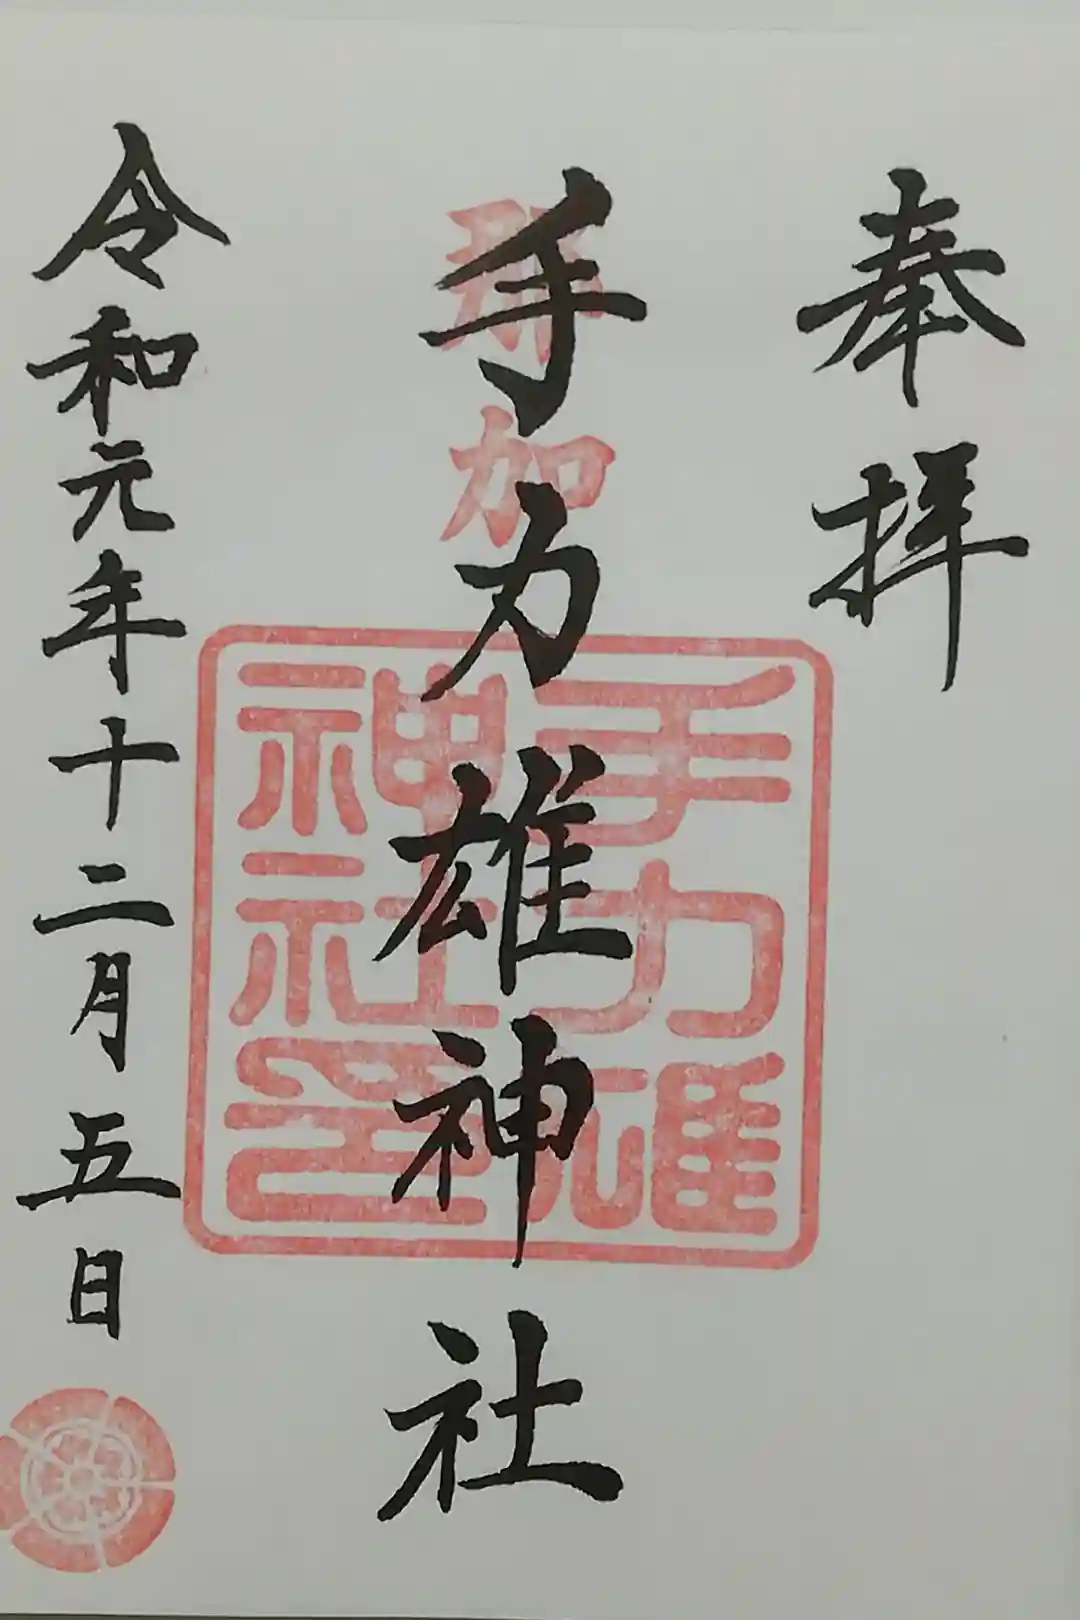 奉拝
那加
手力雄神社
手力雄
神社印
令和元年十二月五日